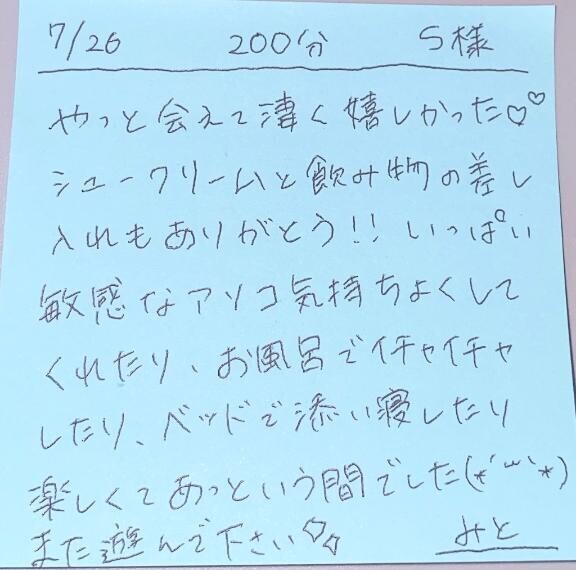 7/26 200分 S様
やっと会えて凄く嬉しかった♡♡
シュークリームと飲み物の差し
入れもありがとう!! いっぱい
敏感なアソコ気持ちよくして
くれたり、お風呂でイチャイチャ
したり、ベッドで添い寝したり
楽しくてあっという間でした(*´꒳`*)
また遊んで下さい♡♡ みと